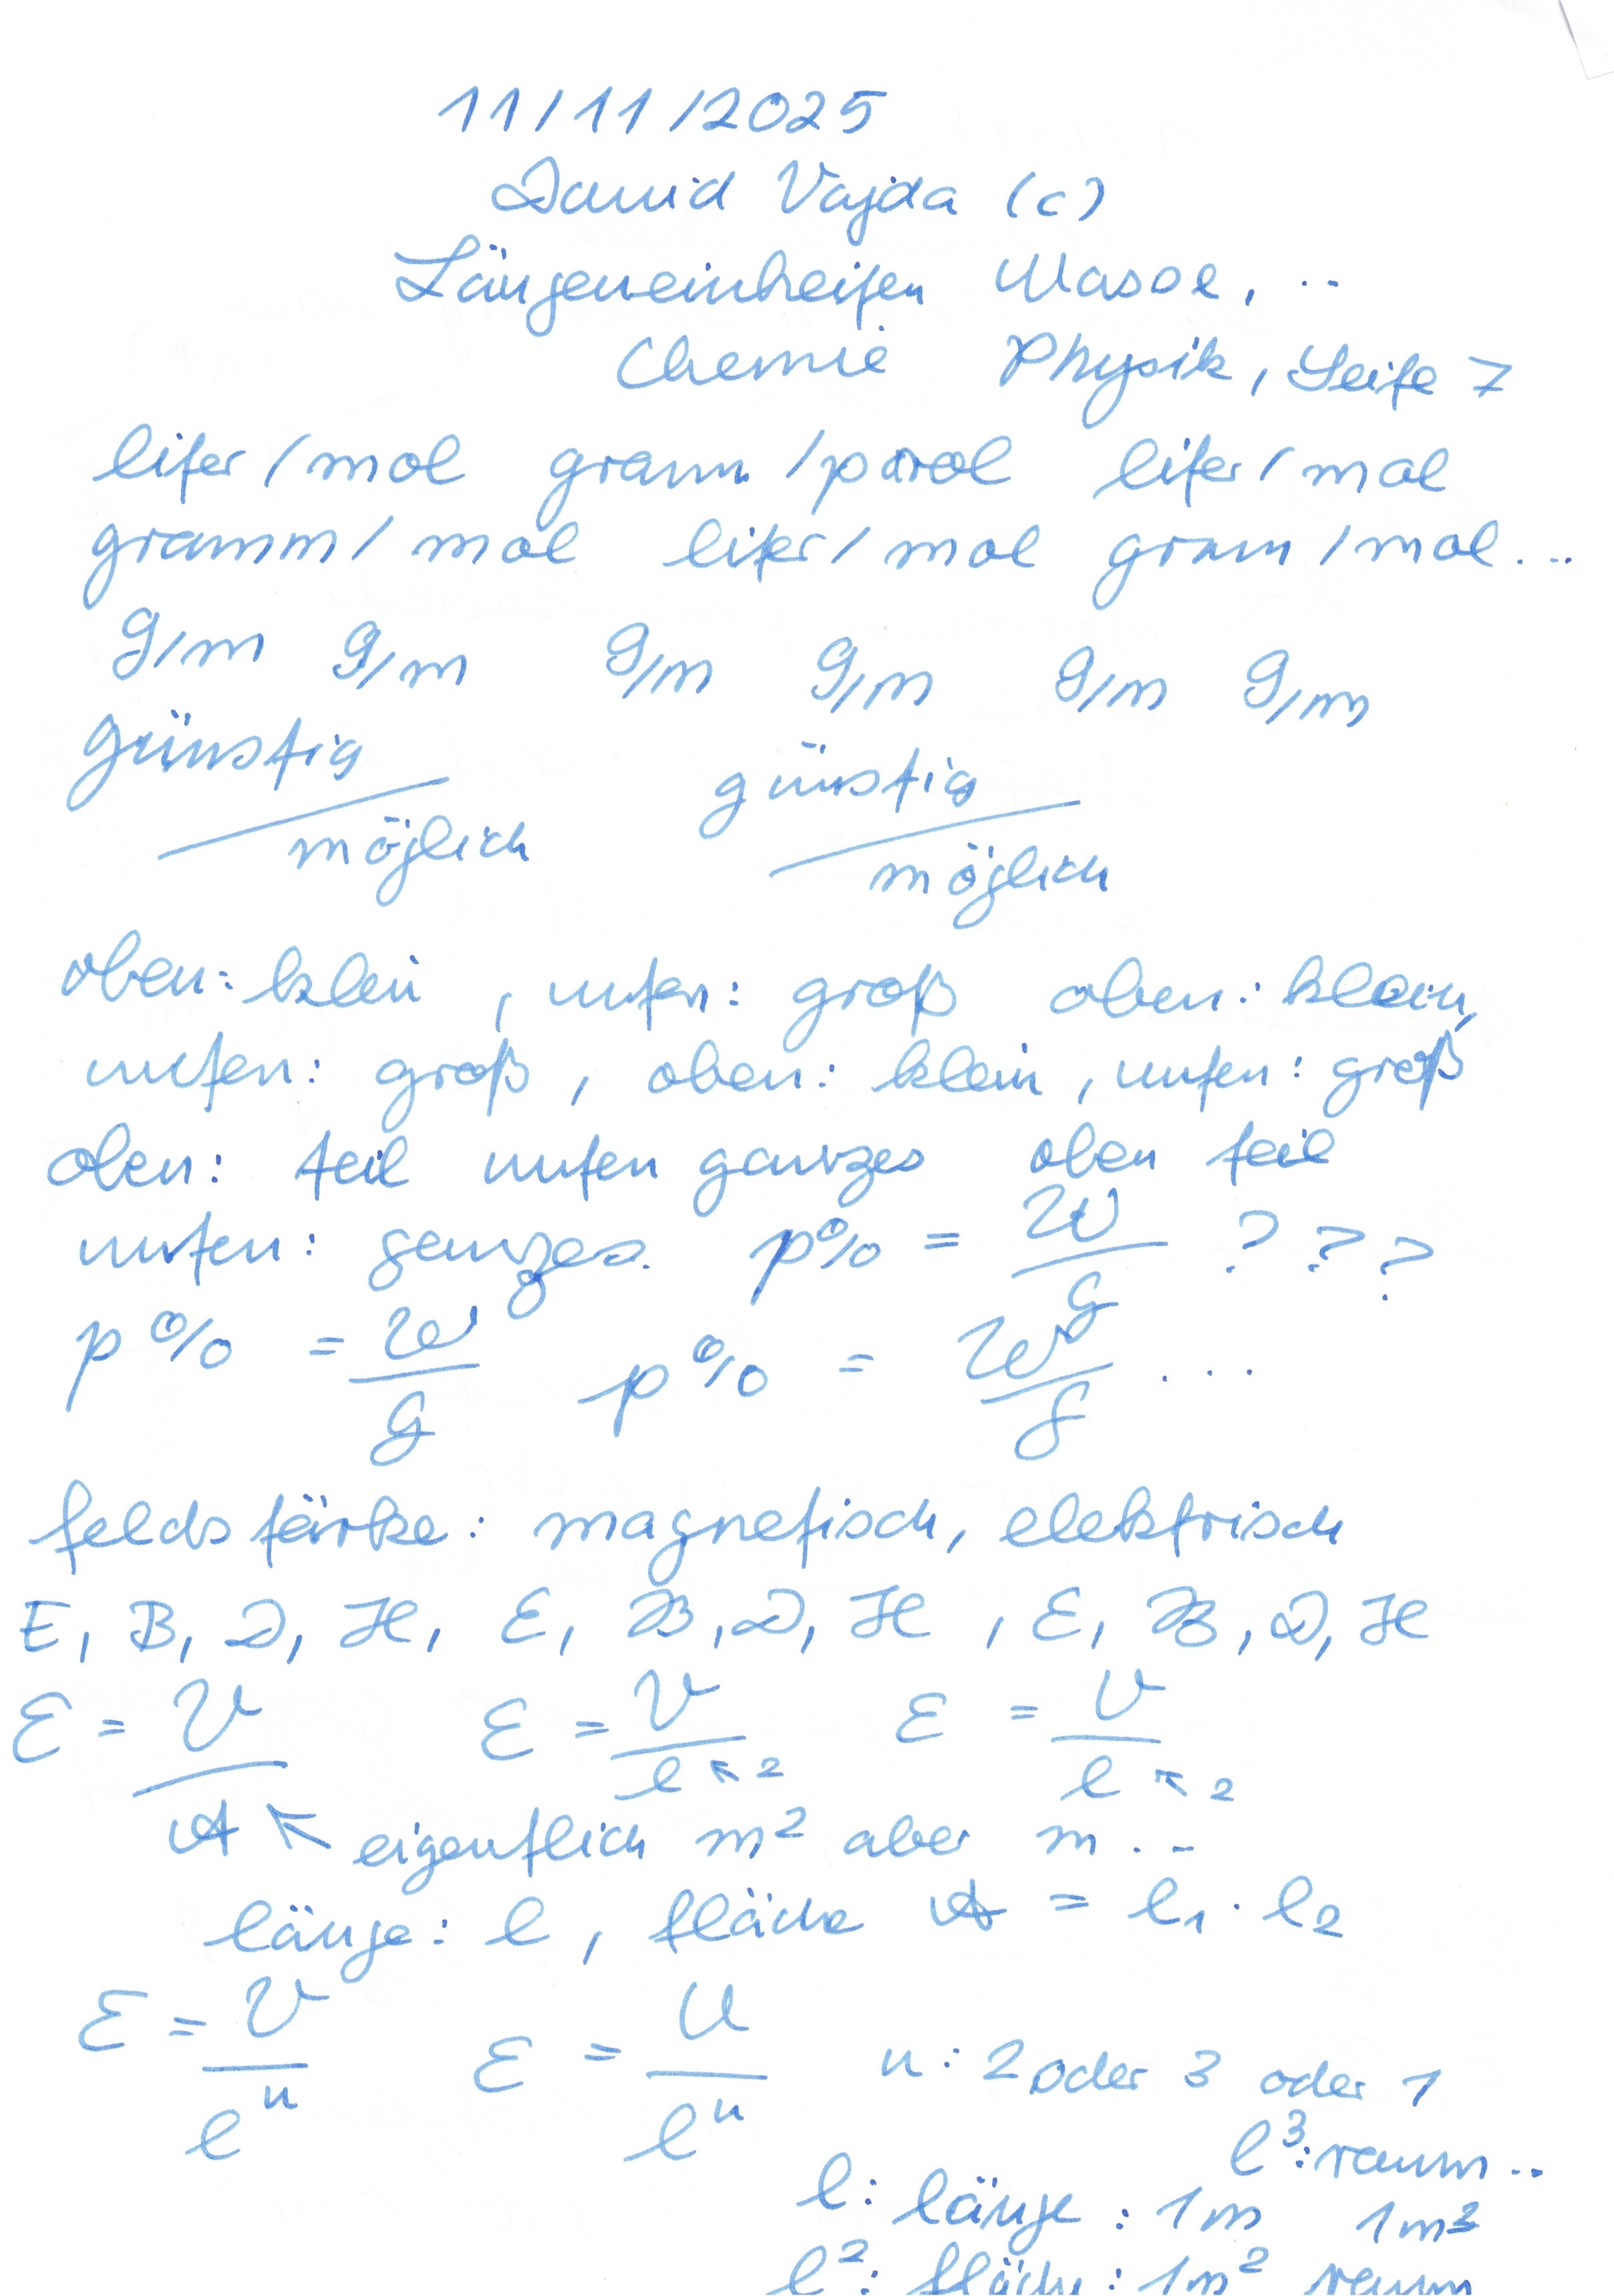 11/11/2025
David Vajda (c)
Längeneinheiten Masse, ..
Chemie Physik, Seite 7
liter/mol gramm/mol liter/mol
gramm/mol liter/mol gram/mol...
g/m g/m g/m g/m g/m g/m
günstig/möglich günstig/möglich
oben: klein, unten: groß oben: klein,
unten: groß, oben: klein, unten: groß
oben: teil unten ganzes oben teil
unten: ganzes. p% = W/G ???
p% = W/G p% = W/G ...
feldstärke: magnetisch, elektrisch
E, B, D, H, E, B, D, H, E, B, D, H
E = V/A E = V/l ↖ 2 E = V/l ↖ 2
↖ eigentlich m² aber m ...
länge: l, fläche A = l₁ · l₂
E = V/lⁿ E = U/lⁿ n: 2 oder 3 oder 1
l³: raum ..
l: länge: 1m 1m³
l²: fläche: 1m² raum